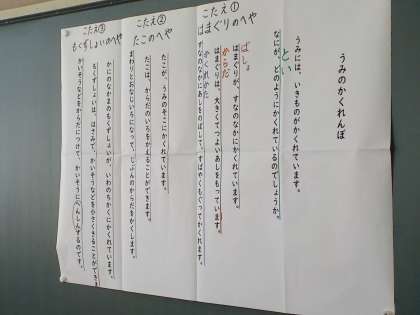 うみのかくれんぼ
うみには、いきものがかくれています。
とい
なにが、どのようにかくれているのでしょうか。
こたえ①
はまぐりのへや
ばしょ
はまぐりが、すなのなかにかくれています。
からだ
はまぐりは、大きくてつよいあしをもっています。
かくれかた
すなのなかにあしをのばして、すばやくもぐってかくれます。
こたえ②
たこのへや
たこが、うみのそこにかくれています。
たこは、からだのいろをかえることができます。
まわりとおなじいろになって、じぶんのからだをかくします。
こたえ③
もくずしょいのへや
かにのなかまのもくずしょいが、いわのちかくにかくれています。
もくずしょいは、はさみで、かいそうなどを小さくきることができ
かいそうなどをからだにつけて、かいそうにへんしんするのです。